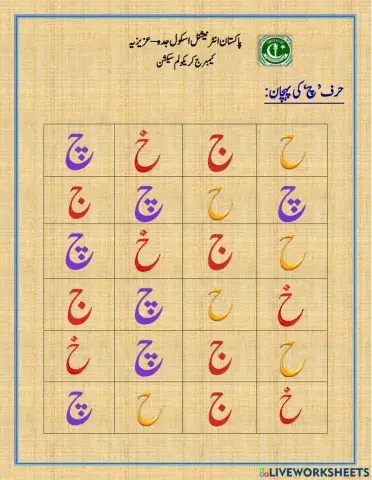 پاکستان انٹرنیشنل اسکول جدہ – عزیزیہ
کیمبرج کریکولم سیکشن
حرف ’چ‘ کی پہچان:
ح ج خ چ
چ ح چ ج
ح ج خ چ
خ ح چ ج
ح ج چ خ
خ ج ح چ
LIVEWORKSHEETS